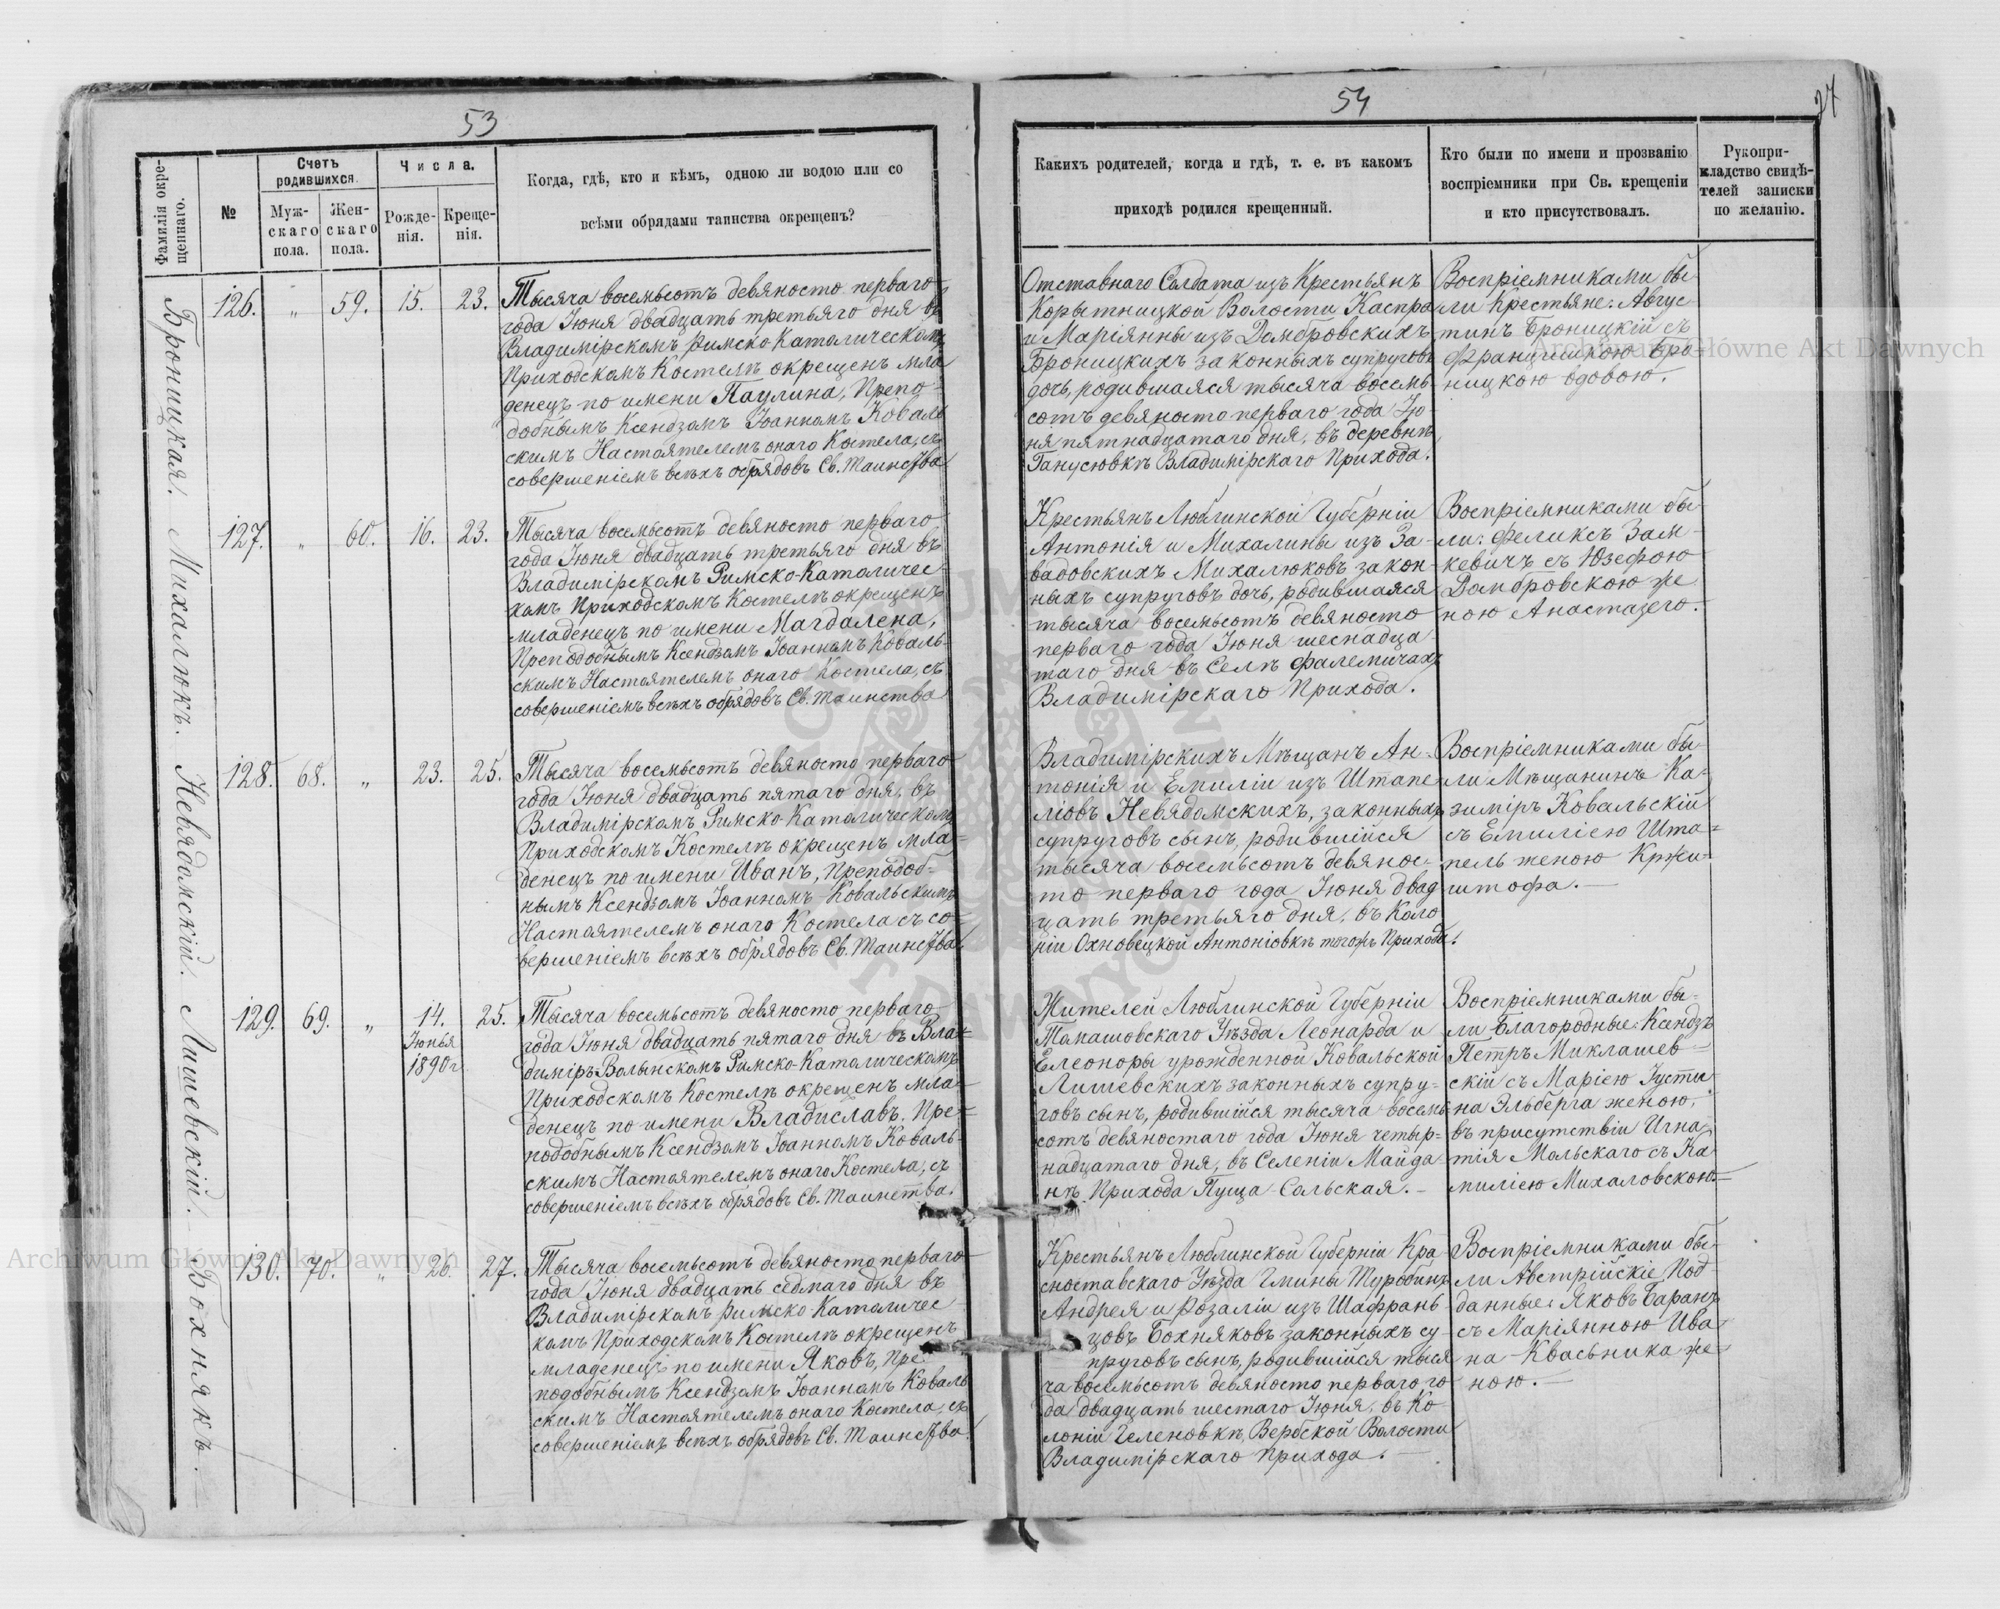 53
54
27
Фамилія окре-
щеннаго.
№
Счетъ
родившихся.
Муж-
скаго
пола.
Жен-
скаго
пола.
Числа.
Рожде-
нія.
Креще-
нія.
Когда, гдѣ, кто и кѣмъ, одною ли водою или со
всѣми обрядами таинства окрещенъ?
Какихъ родителей, когда и гдѣ, т. е. въ какомъ
приходѣ родился крещенный.
Кто были по имени и прозванію
воспріемники при Св. крещеніи
и кто присутствовалъ.
Рукопри-
кладство свидѣ-
телей записки
по желанію.
Броницкая.
126. „ 59. 15. 23.
Тысяча восемьсотъ девяносто перваго
года Іюня двадцать третьяго дня въ
Владимірскомъ Римско-Католическомъ
Приходскомъ Костелѣ окрещенъ мла
денецъ по имени Паулина, Препо-
добнымъ Ксендзомъ Іоанномъ Коваль
скимъ Настоятелемъ онаго Костела, съ
совершеніемъ всѣхъ обрядовъ Св. Таинства
Отставнаго Солдата изъ Крестьянъ
Корытницкой Волости Каспра
и Маріянны изъ Домбровскихъ
Броницкихъ законныхъ супруговъ
дочь, родившаяся тысяча восемь-
сотъ девяносто перваго года Ію-
ня пятнадцатаго дня, въ деревнѣ
Ганусювкѣ Владимірскаго Прихода.
Воспріемниками бы-
ли Крестьяне: Авгус
тинъ Броницкій съ
Францишкою Бро
ницкою вдовою.
Михалюкъ.
127. „ 60. 16. 23.
Тысяча восемьсотъ девяносто перваго
года Іюня двадцать третьяго дня въ
Владимірскомъ Римско-Католичес-
комъ Приходскомъ Костелѣ окрещенъ
младенецъ по имени Магдалена,
Преподобнымъ Ксендзомъ Іоанномъ Коваль-
скимъ Настоятелемъ онаго Костела, съ
совершеніемъ всѣхъ обрядовъ Св. Таинства
Крестьянъ Люблинской Губерніи
Антонія и Михалины изъ За-
вадовскихъ Михалюковъ закон-
ныхъ супруговъ дочь, родившаяся
тысяча восемьсотъ девяносто
перваго года Іюня шеснадца
таго дня въ Селѣ Фалемичахъ
Владимірскаго Прихода.
Воспріемниками бы-
ли: Феликсъ Зам-
кевичъ съ Юзефою
Домбровскою же
ною Анастазего.
Невядомскій.
128. 68. „ 23. 25.
Тысяча восемьсотъ девяносто перваго
года Іюня двадцать пятаго дня, въ
Владимірскомъ Римско-Католическомъ
Приходскомъ Костелѣ окрещенъ мла-
денецъ по имени Иванъ, Преподоб-
нымъ Ксендзомъ Іоанномъ Ковальскимъ
Настоятелемъ онаго Костела съ со-
вершеніемъ всѣхъ обрядовъ Св. Таинства.
Владимірскихъ Мѣщанъ Ан-
тонія и Емиліи изъ Штапе
лювъ Невядомскихъ, законныхъ
супруговъ сынъ, родившійся
тысяча восемьсотъ девянос-
то перваго года Іюня двад
цать третьяго дня, въ Коло
ніи Охновецкой Антоніовкѣ тогожъ Прихода.
Воспріемниками бы-
ли Мѣщанинъ Ка-
зиміръ Ковальскій
съ Емиліею Шта-
пель женою Кржи-
штофа.
Лишевскій.
129. 69. „ 14. 25.
Іюня
1890 г.
Тысяча восемьсотъ девяносто перваго
года Іюня двадцать пятаго дня въ Вла-
диміръ-Волынскомъ Римско-Католическомъ
Приходскомъ Костелѣ окрещенъ мла-
денецъ по имени Владиславъ, Пре-
подобнымъ Ксендзомъ Іоанномъ Коваль-
скимъ Настоятелемъ онаго Костела, съ
совершеніемъ всѣхъ обрядовъ Св. Таинства.
Жителей Люблинской Губерніи
Томашовскаго Уѣзда Леонарда и
Елеоноры урожденной Ковальской
Лишевскихъ законныхъ супру-
говъ сынъ, родившійся тысяча восемь
сотъ девяностаго года Іюня четыр-
надцатаго дня, въ Селеніи Майда
нѣ Прихода Пуща-Сольская.
Воспріемниками бы-
ли Благородные: Ксендзъ
Петръ Миклашев-
скій съ Маріею Густи
на Эльберга женою,
въ присутствіи Игна
тія Мольскаго съ Ка
миліею Михаловскою.
Бохнякъ.
130. 70. „ 26. 27.
Тысяча восемьсотъ девяносто перваго
года Іюня двадцать седмаго дня въ
Владимірскомъ Римско-Католичес
комъ Приходскомъ Костелѣ окрещенъ
младенецъ по имени Яковъ, Пре
подобнымъ Ксендзомъ Іоанномъ Коваль
скимъ Настоятелемъ онаго Костела, съ
совершеніемъ всѣхъ обрядовъ Св. Таинства.
Крестьянъ Люблинской Губерніи Кра
сноставскаго Уѣзда Гмины Туробинъ
Андрея и Розаліи изъ Шафрань
цовъ Бохняковъ законныхъ су-
пруговъ сынъ, родившійся тыся
ча восемьсотъ девяносто перваго го
да двадцать шестаго Іюня, въ Ко
лоніи Геленовкѣ, Вербской Волости
Владимірскаго Прихода.
Воспріемниками бы-
ли Австрійскіе Под-
данные: Яковъ Баранъ
съ Маріянною Ива
на Квасьника же-
ною.
Archiwum Główne Akt Dawnych
Archiwum Główne Akt Dawnych